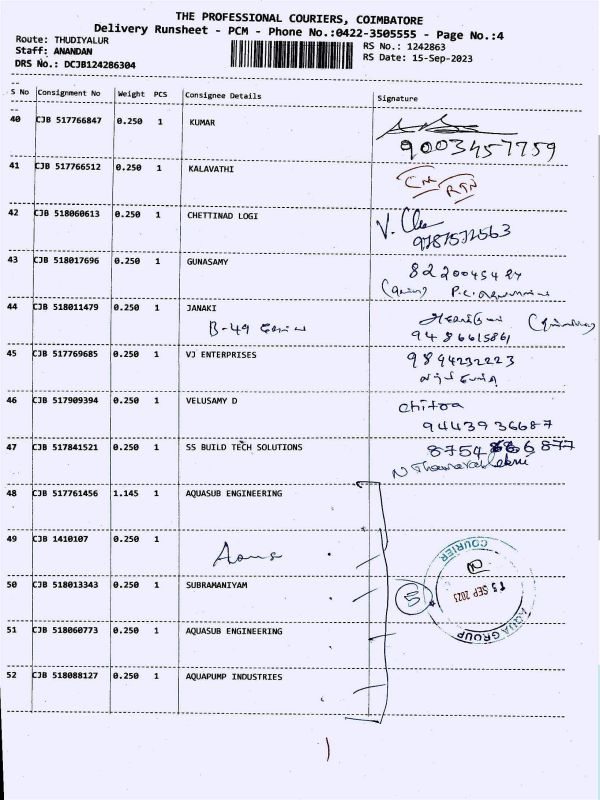 THE PROFESSIONAL COURIERS, COIMBATORE
Delivery Runsheet - PCM - Phone No.:0422-3505555 - Page No.:4
Route: THUDIYALUR
Staff: ANANDAN
DRS No.: DCJB124286304
RS No.: 1242863
RS Date: 15-Sep-2023
S No Consignment No Weight PCS Consignee Details Signature
40 CJB 517766847 0.250 1 KUMAR
9003457759
41 CJB 517766512 0.250 1 KALAVATHI
RTN
42 CJB 518060613 0.250 1 CHETTINAD LOGI
43 CJB 518017696 0.250 1 GUNASAMY
44 CJB 518011479 0.250 1 JANAKI
B-49
9486615861
45 CJB 517769685 0.250 1 VJ ENTERPRISES
9894232223
46 CJB 517909394 0.250 1 VELUSAMY D
chitra
9443936687
47 CJB 517841521 0.250 1 SS BUILD TECH SOLUTIONS
48 CJB 517761456 1.145 1 AQUASUB ENGINEERING
49 CJB 1410107 0.250 1
50 CJB 518013343 0.250 1 SUBRAMANIYAM
5
COURIER
15 SEP 2023
AQUA GROUP
51 CJB 518060773 0.250 1 AQUASUB ENGINEERING
52 CJB 518088127 0.250 1 AQUAPUMP INDUSTRIES